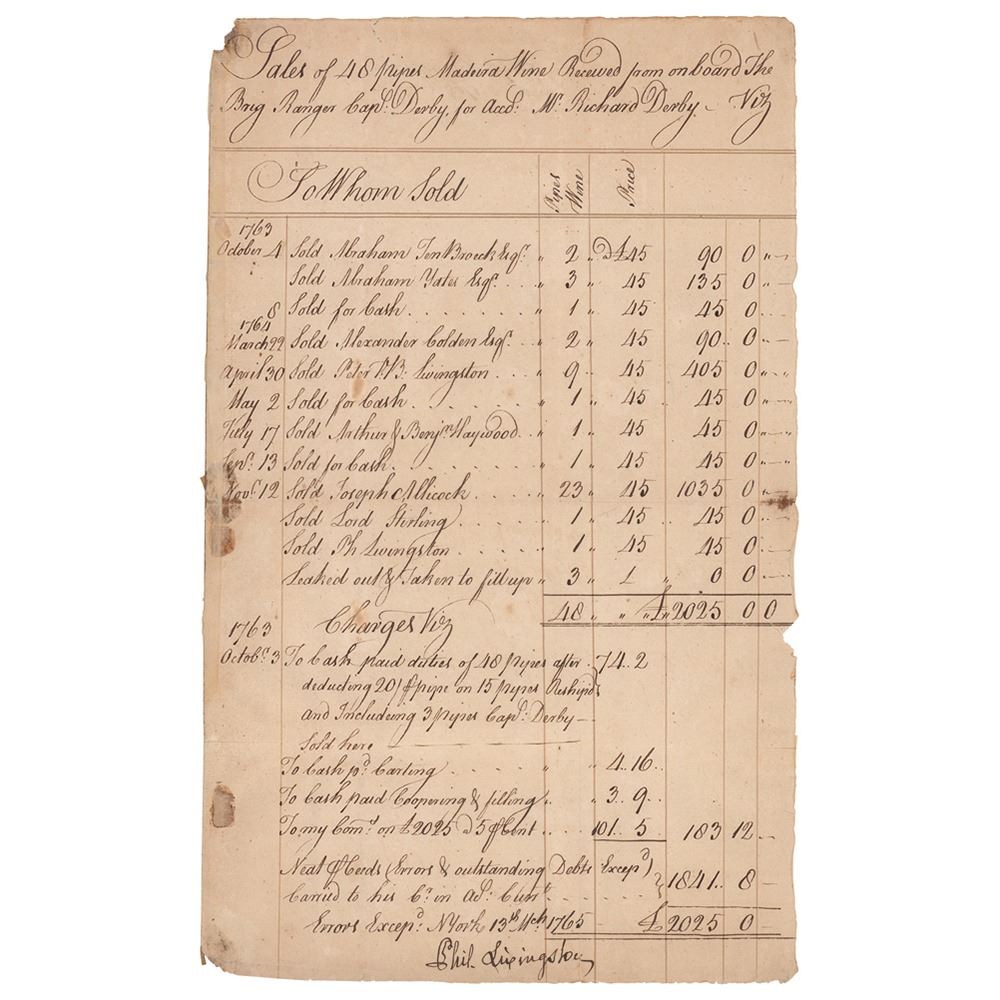 Sales of 48 pipes Madeira Wine Received from on board The
Brig Ranger Capt. Derby, for Acct. Mr. Richard Derby - Viz
To Whom Sold Pipes Wine Price
1763
October 4 Sold Abraham Ten Broeck Esqr. " 2 " @ £45 90 0 "
Sold Abraham Yates Esqr. . . . " 3 " 45 135 0 "
8 Sold for Cash . . . . . . . " 1 " 45 45 0
1764
March 22 Sold Alexander Colden Esqr. . . " 2 " 45 90 0 "
April 30 Sold Peter V. B. Livingston . . . " 9 " 45 405 0 "
May 2 Sold for Cash . . . . . . . " 1 " 45 45 0 "
July 17 Sold Arthur & Benjn. Haywood . . " 1 " 45 45 0 "
Sepr. 13 Sold for Cash . . . . . . . " 1 " 45 45 0 "
Novr. 12 Sold Joseph Allicock . . . . " 23 " 45 1035 0 "
Sold Lord Stirling . . . . . " 1 " 45 45 0 "
Sold Ph Livingston . . . . . " 1 " 45 45 0
Leaked out & Taken to fill up " 3 " 0 0
48 " " £ " 2025 0 0
1763 Charges Viz
Octobr. 3 To Cash paid duties of 48 pipes after . 74 . . 2
deducting 20/ ⅌ pipe on 15 pipes Reshipd.
and Including 3 pipes Capt. Derby —
Sold here
To Cash pd. Carting . . . . . " " 4 . . 16 . .
To Cash paid Coopering & filling . . " 3 . . 9 . .
To my Comn. on £2025 @ 5 ⅌ Cent . . . . 101 . . 5 183 12 —
Neat ⅌ceeds (Errors & outstanding Debts Excepd.)
Carried to his Cr. in Act. Curt. . . . . . 1841 . . 8 —
Errors Excepd. N York 13th Mch. 1765 - £ 2025 0 —
Phil. Livingston